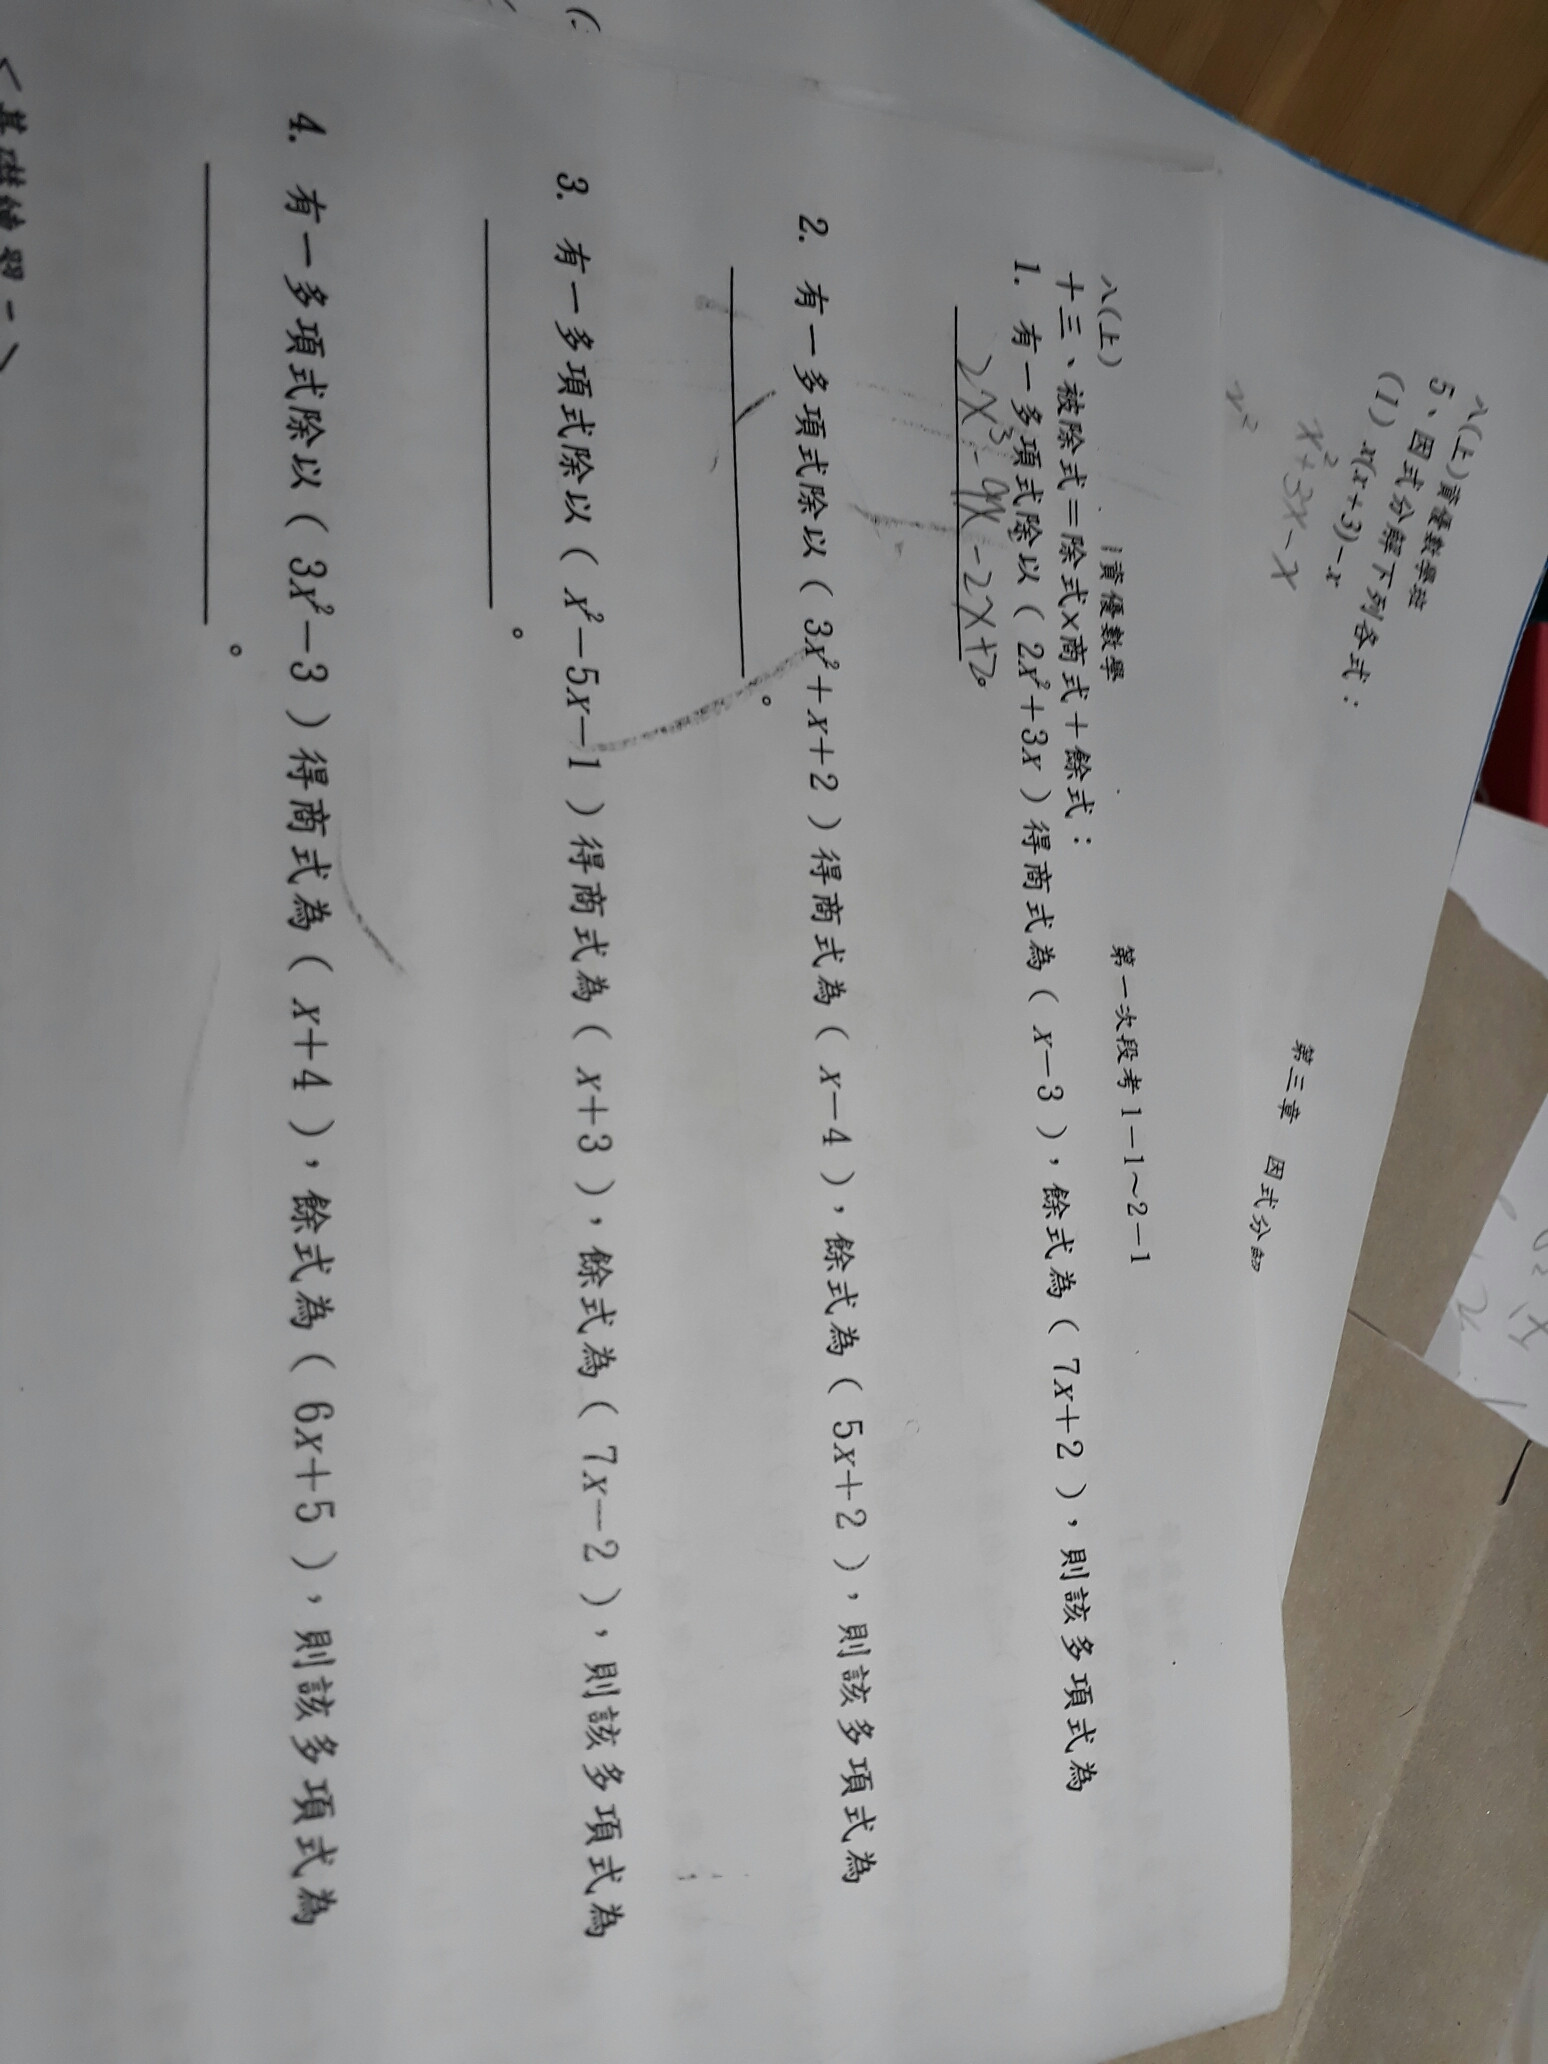 八(上)資優數學班
第三章 因式分
5、因式分解下列各式：
(1) x(x+3)−x
x²+3x−x
x²
八(上)
資優數學
第一次段考1−1～2−1
十三、被除式＝除式×商式＋餘式：
1. 有一多項式除以（2x²＋3x）得商式為（x−3），餘式為（7x＋2），則該多項式為
2x³−9x−2x+2。
2. 有一多項式除以（3x²＋x＋2）得商式為（x−4），餘式為（5x＋2），則該多項式為
。
3. 有一多項式除以（x²−5x−1）得商式為（x＋3），餘式為（7x−2），則該多項式為
。
4. 有一多項式除以（3x²−3）得商式為（x＋4），餘式為（6x＋5），則該多項式為
。
＜基礎練習一＞